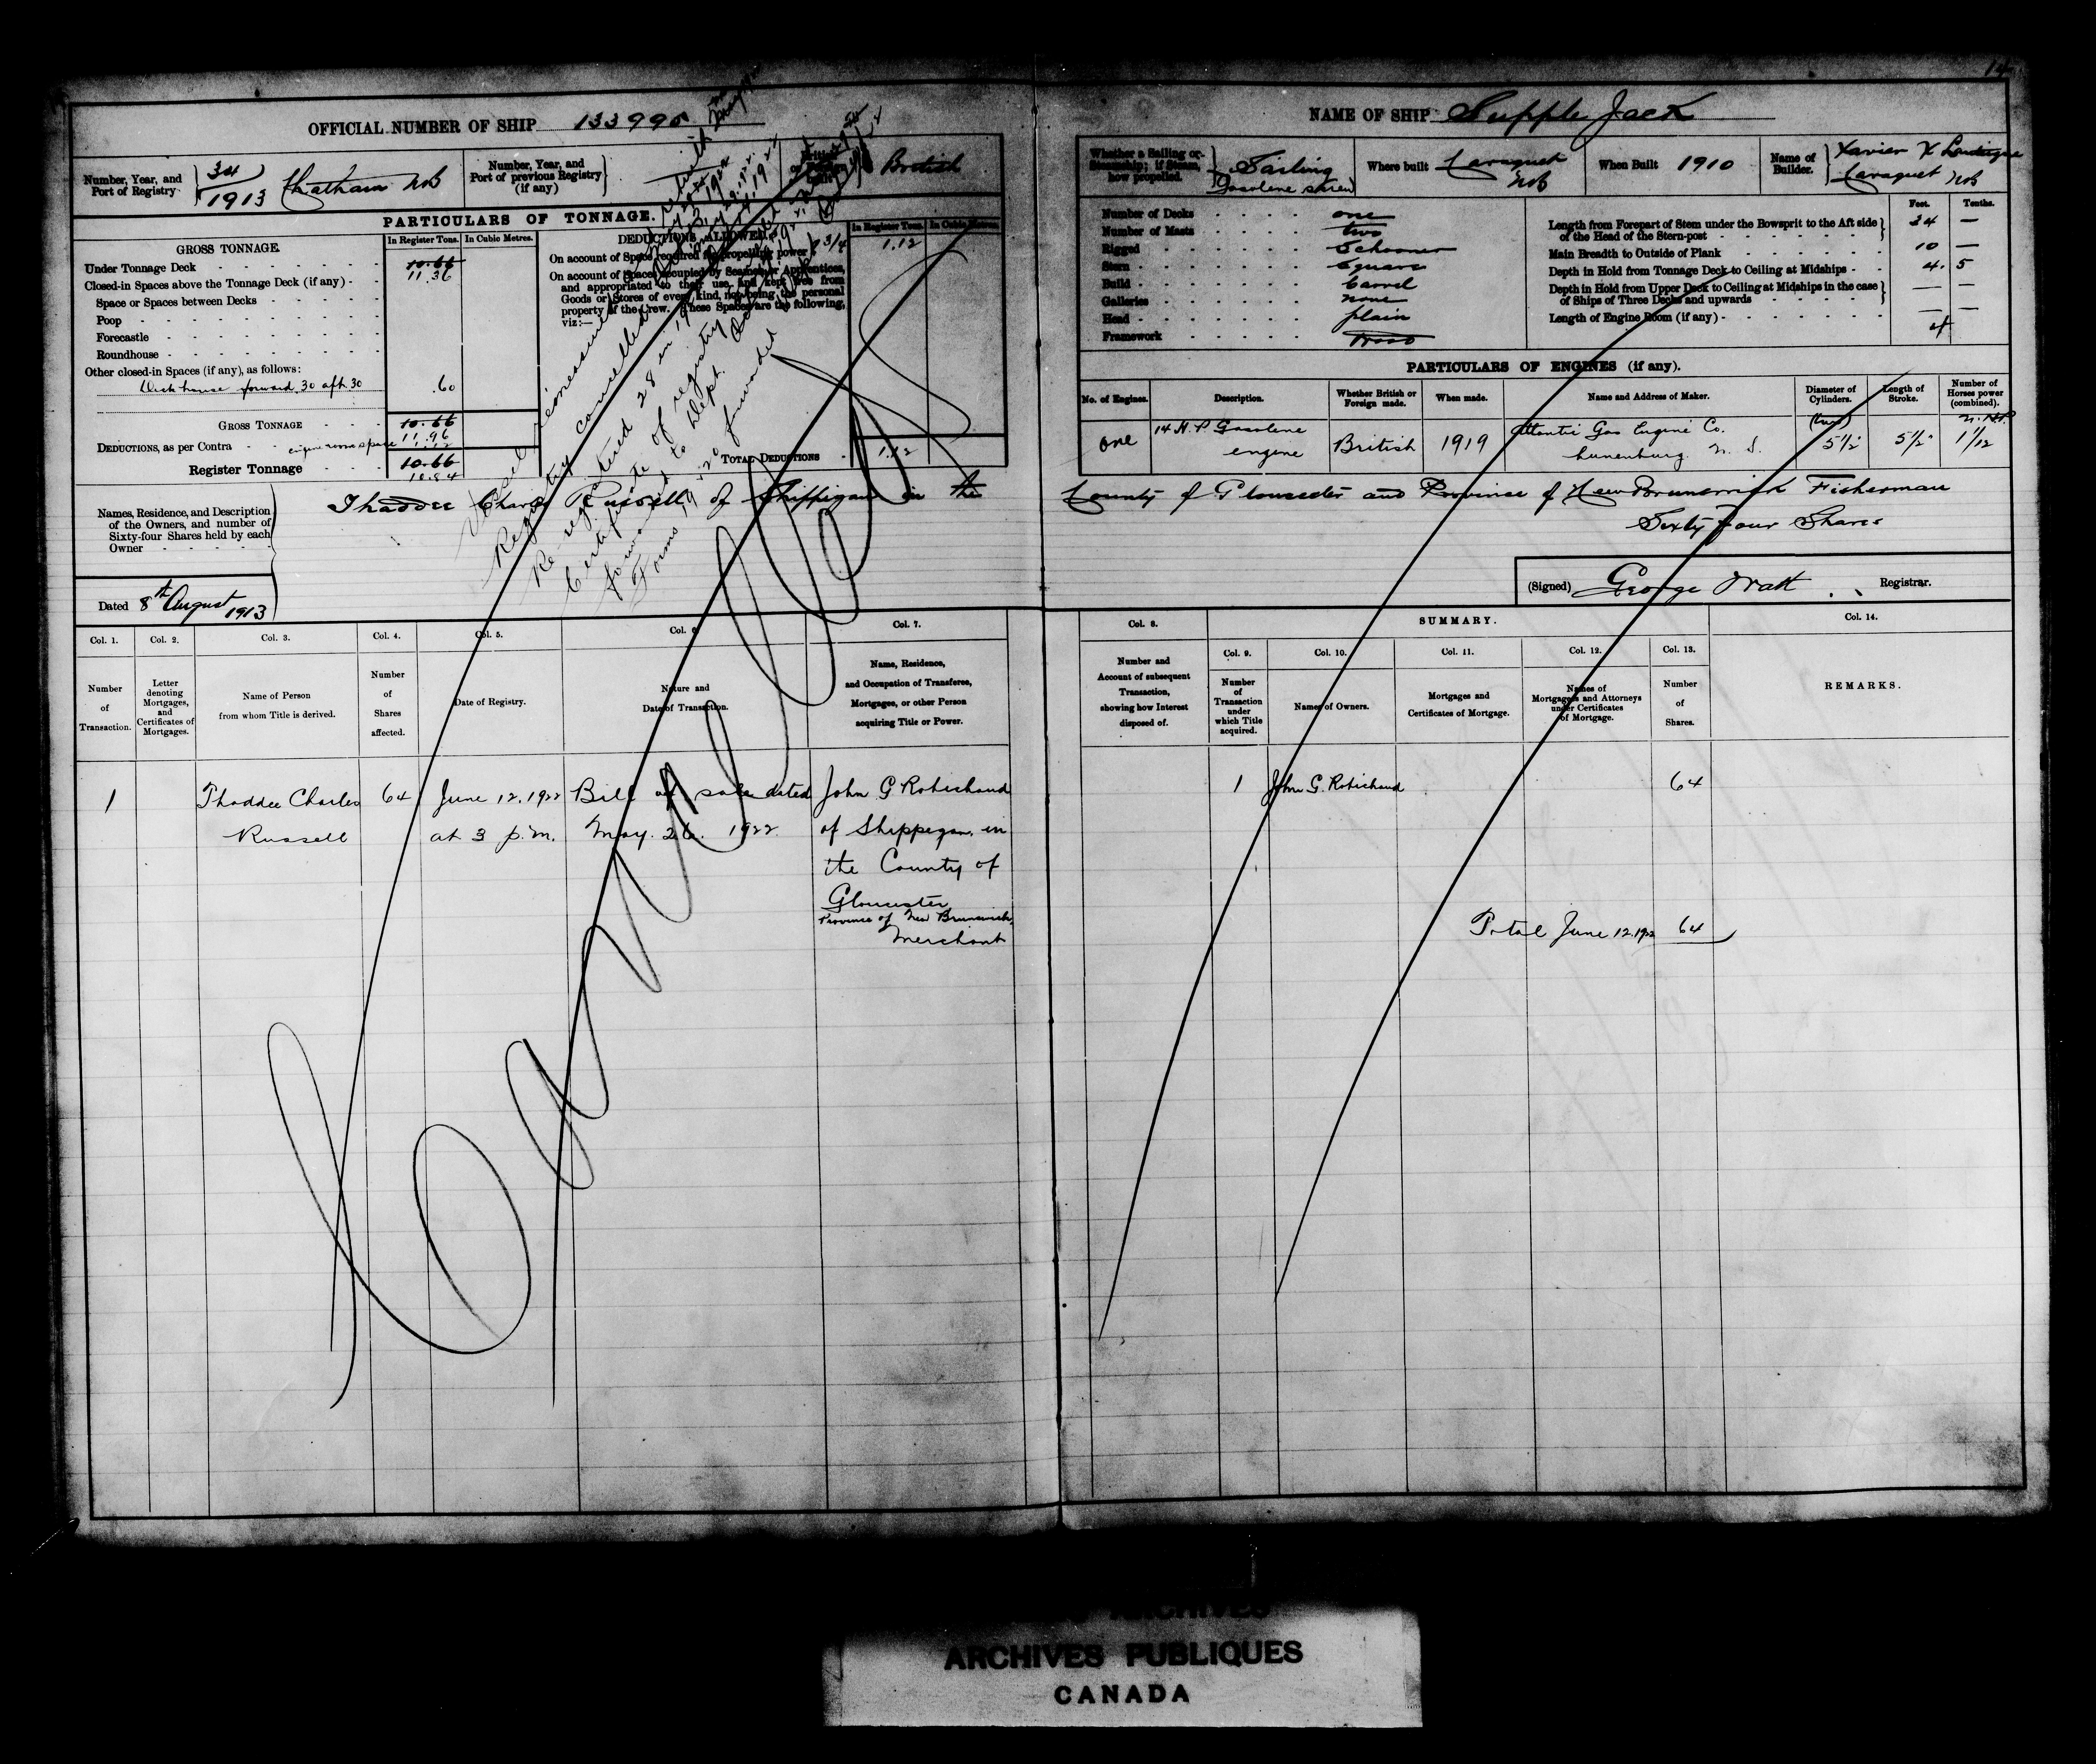 14
OFFICIAL NUMBER OF SHIP 133995
NAME OF SHIP Supple Jack
Number, Year, and Port of Registry 34/1913 Chatham NB
Number, Year, and Port of previous Registry (if any)
British
Whether a Sailing or Steamship; if Steam, how propelled. Sailing Gasolene screw
Where built Caraquet NB
When Built 1910
Name of Builder. Xavier X Lanteigne Caraquet NB
PARTICULARS OF TONNAGE.
GROSS TONNAGE.
In Register Tons.
In Cubic Metres.
Under Tonnage Deck 10.66
11.36
Closed-in Spaces above the Tonnage Deck (if any)
Space or Spaces between Decks
Poop
Forecastle
Roundhouse
Other closed-in Spaces (if any), as follows:
Deck house forward .30 aft .30 .60
GROSS TONNAGE 10.66
11.96
DEDUCTIONS, as per Contra engine room space 1.12
Register Tonnage 10.66
10.84
DEDUCTIONS ALLOWED.
In Register Tons.
In Cubic Metres.
On account of Space required for propelling power 1.12
On account of Spaces occupied by Seamen or Apprentices, and appropriated to their use, and kept free from Goods or Stores of every kind, not being the personal property of the Crew. These Spaces are the following, viz:—
TOTAL DEDUCTIONS 1.12
Registry cancelled
Re-registered 28 in 19
Certificate of registry
forwarded to Dept.
Forms 19 20 forwarded
Number of Decks one
Number of Masts two
Rigged Schooner
Stern Square
Build Carvel
Galleries none
Head plain
Framework Wood
Feet. Tenths.
Length from Forepart of Stem under the Bowsprit to the Aft side of the Head of the Stern-post 34 —
Main Breadth to Outside of Plank 10 —
Depth in Hold from Tonnage Deck to Ceiling at Midships 4. 5
Depth in Hold from Upper Deck to Ceiling at Midships in the case of Ships of Three Decks and upwards — —
Length of Engine Room (if any) 4
PARTICULARS OF ENGINES (if any).
No. of Engines.
Description.
Whether British or Foreign made.
When made.
Name and Address of Maker.
Diameter of Cylinders.
Length of Stroke.
Number of Horses power (combined).
one
14 H.P. Gasolene engine
British
1919
Atlantic Gas Engine Co. Lunenburg. N. S.
(two) 5½"
5½"
N.H.P. 1 1/12
Names, Residence, and Description of the Owners, and number of Sixty-four Shares held by each Owner
Thaddee Charles Russell of Shippigan in the County of Gloucester and Province of New Brunswick Fisherman
Sixty four Shares
Dated 8th August 1913
(Signed) George Watt Registrar.
Col. 1. Number of Transaction.
Col. 2. Letter denoting Mortgages, and Certificates of Mortgages.
Col. 3. Name of Person from whom Title is derived.
Col. 4. Number of Shares affected.
Col. 5. Date of Registry.
Col. 6. Nature and Date of Transaction.
Col. 7. Name, Residence, and Occupation of Transferee, Mortgagee, or other Person acquiring Title or Power.
Col. 8. Number and Account of subsequent Transaction, showing how Interest disposed of.
SUMMARY.
Col. 9. Number of Transaction under which Title acquired.
Col. 10. Names of Owners.
Col. 11. Mortgages and Certificates of Mortgage.
Col. 12. Names of Mortgagees and Attorneys under Certificates of Mortgage.
Col. 13. Number of Shares.
Col. 14. REMARKS.
1
Thaddee Charles Russell
64
June 12, 1922 at 3 p.m.
Bill of sale dated May. 26. 1922
John G Robichaud
of Shippegan, in
the County of
Gloucester
Province of New Brunswick,
Merchant
1
John G. Robichaud
64
Total June 12.1922 64
Cancelled
ARCHIVES PUBLIQUES
CANADA